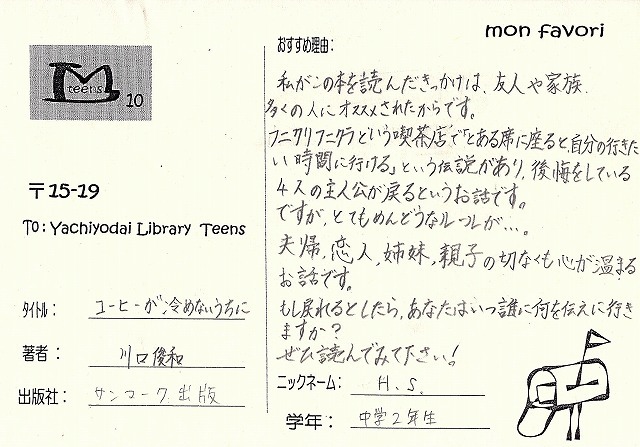 mon favori
M
teens 10
〒15-19
To: Yachiyodai Library Teens
タイトル： コーヒーが冷めないうちに
著者： 川口俊和
出版社： サンマーク出版
おすすめ理由：
私がこの本を読んだきっかけは、友人や家族、
多くの人にオススメされたからです。
フニクリフニクラという喫茶店で「とある席に座ると、自分の行きた
い時間に行ける」という伝説があり、後悔をしている
4人の主人公が戻るというお話です。
ですが、とてもめんどうなルールが…。
夫婦、恋人、姉妹、親子の切なくも心が温まる
お話です。
もし戻れるとしたら、あなたはいつ誰に何を伝えに行き
ますか？
ぜひ読んでみて下さい！
ニックネーム： H.S.
学年： 中学2年生